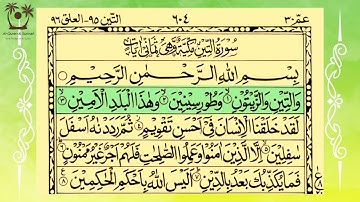 عمّ ٣٠ ٦٠٤ التين ٩٥ - العلق ٩٦
سُوْرَةُ التِّيْنِ مَكِّيَّةٌ وَّهِيَ ثَمَانِيْ اٰيَاتٍ
بِسْمِ اللهِ الرَّحْمٰنِ الرَّحِيْمِ
وَالتِّيْنِ وَالزَّيْتُوْنِ ۝١ وَطُوْرِ سِيْنِيْنَ ۝٢ وَهٰذَا الْبَلَدِ الْاَمِيْنِ ۝٣
لَقَدْ خَلَقْنَا الْاِنْسَانَ فِيْۤ اَحْسَنِ تَقْوِيْمٍ ۝٤ ثُمَّ رَدَدْنٰهُ اَسْفَلَ
سٰفِلِيْنَ ۝٥ اِلَّا الَّذِيْنَ اٰمَنُوْا وَعَمِلُوا الصّٰلِحٰتِ فَلَهُمْ اَجْرٌ غَيْرُ مَمْنُوْنٍ ۝٦
فَمَا يُكَذِّبُكَ بَعْدُ بِالدِّيْنِ ۝٧ اَلَيْسَ اللهُ بِاَحْكَمِ الْحٰكِمِيْنَ ۝٨